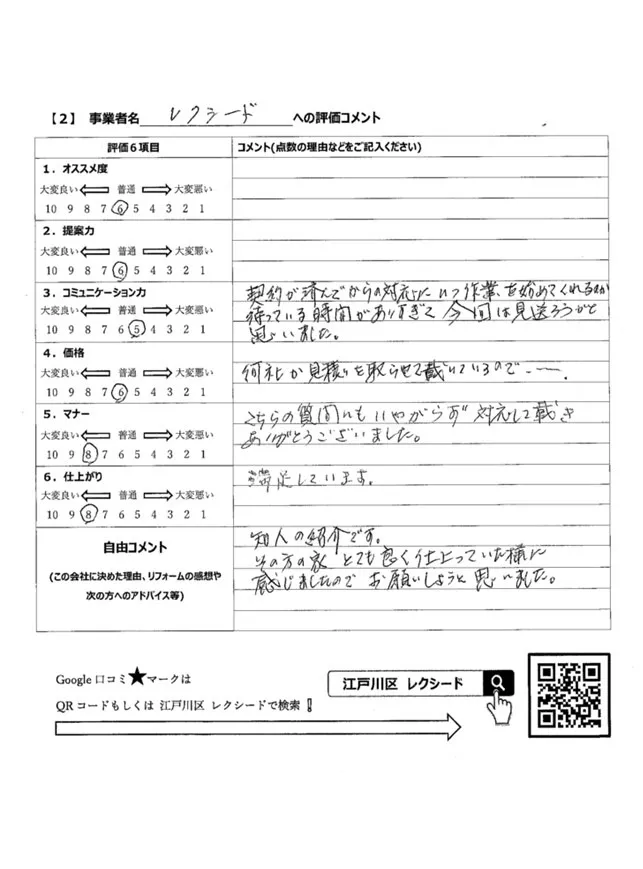 【2】 事業者名 レクシード への評価コメント
評価6項目 コメント(点数の理由などをご記入ください)
1．オススメ度
大変良い 普通 大変悪い
10 9 8 7 6 5 4 3 2 1
2．提案力
大変良い 普通 大変悪い
10 9 8 7 6 5 4 3 2 1
3．コミュニケーション力
大変良い 普通 大変悪い
10 9 8 7 6 5 4 3 2 1
契約が済んでからの対応、いつ作業を始めてくれるか
待っている時間がありすぎて今回は見送ろうかと
思いました。
4．価格
大変良い 普通 大変悪い
10 9 8 7 6 5 4 3 2 1
何社か見積りを取らせて戴いているので－－．
5．マナー
大変良い 普通 大変悪い
10 9 8 7 6 5 4 3 2 1
こちらの質問にもいやがらず対応して戴き
ありがとうございました。
6．仕上がり
大変良い 普通 大変悪い
10 9 8 7 6 5 4 3 2 1
満足しています。
自由コメント
(この会社に決めた理由、リフォームの感想や
次の方へのアドバイス等)
知人の紹介です。
その方の家とても良く仕上っていた様に
感じましたのでお願いしようと思いました。
Google 口コミ★マークは
QRコードもしくは 江戸川区 レクシードで検索！
江戸川区 レクシード